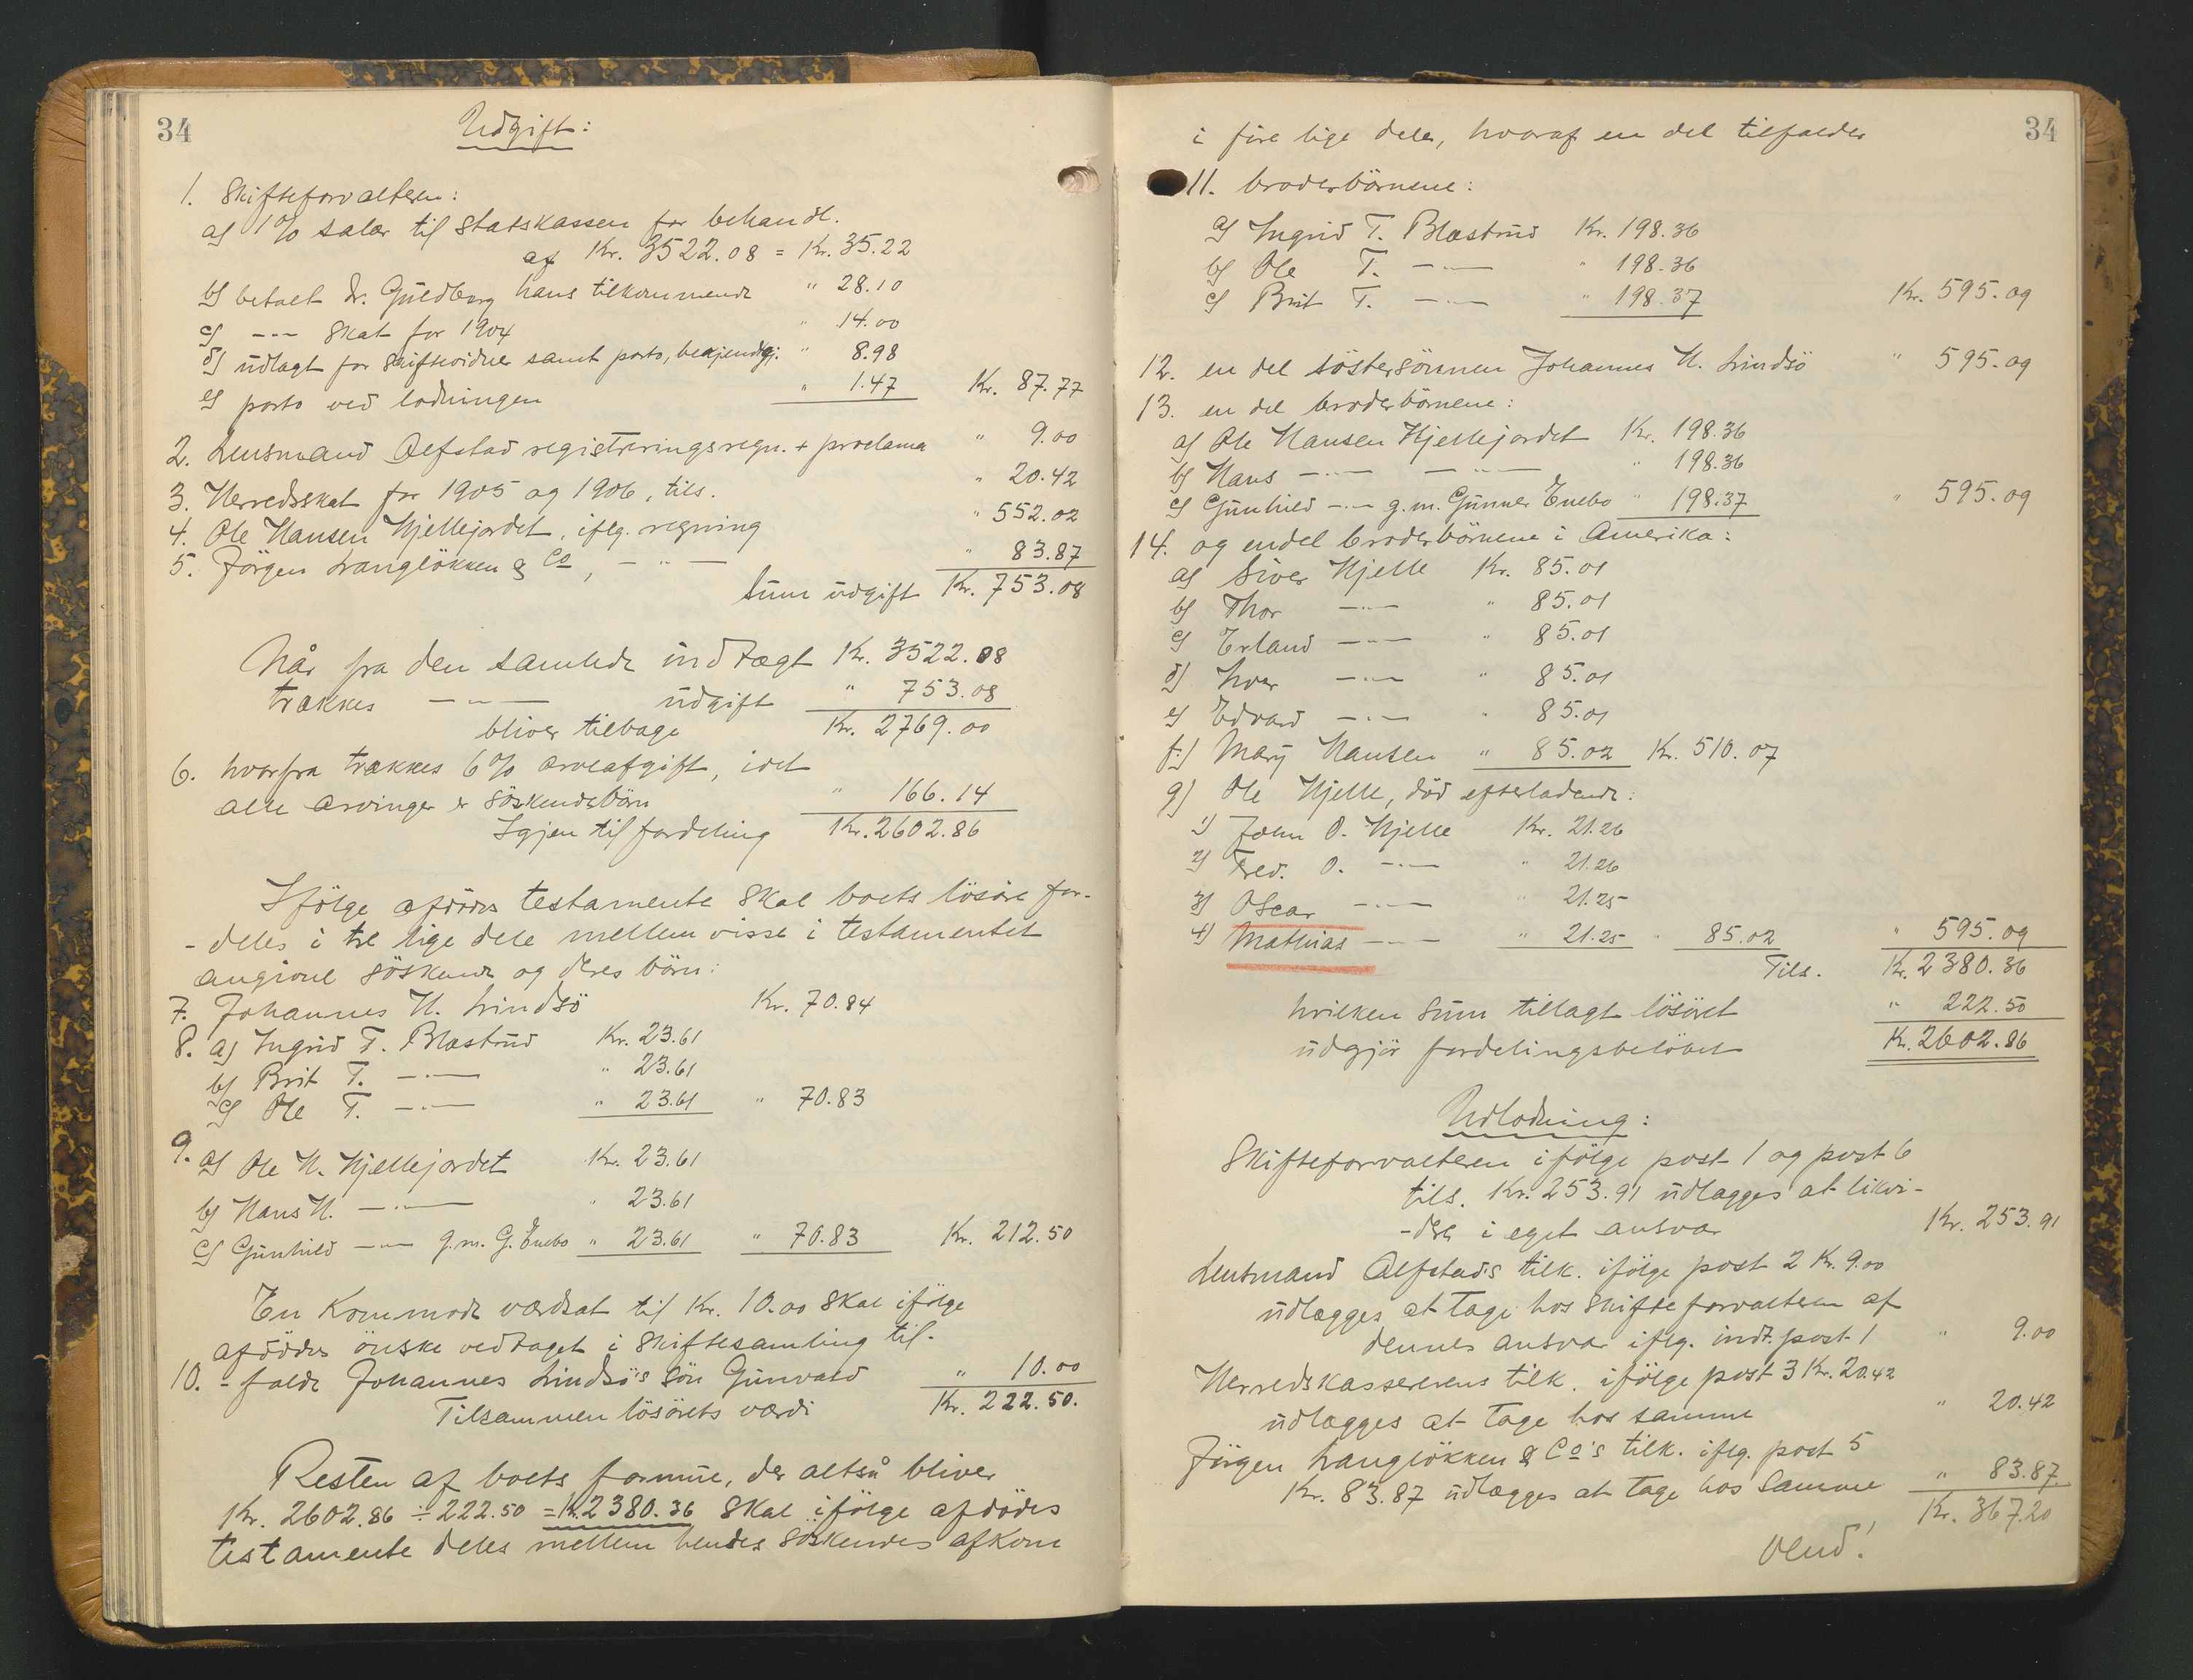 34
Udgift:
1. Skifteforvalteren:
a) 1% salær til Statskassen for behandl.
af Kr. 3522.08 = Kr. 35.22
b) betalt Dr. Guldberg hans tilkommende " 28.10
c) -"- Skat for 1904 " 14.00
d) udlagt for Skiftevidner samt porto, bekjendtgj. " 8.98
e) porto ved lodningen " 1.47 Kr. 87.77
2. Lensmand Alfstad registreringsregn. + proclama " 9.00
3. Herredsskat for 1905 og 1906, tils. " 20.42
4. Ole Hansen Hjellejordet, iflg. regning " 552.02
5. Jörgen Langlökken & Co, -"- " 83.87
Sum udgift Kr. 753.08
Når fra den samlede indtægt Kr. 3522.08
trækkes -"- udgift " 753.08
bliver tilbage Kr. 2769.00
6. hvorfra trækkes 6% arveafgift, idet
alle arvinger er söskendebörn " 166.14
Igjen til fordeling Kr. 2602.86
Ifölge afdödes testamente skal boets lösöre for-
-deles i tre lige dele mellem visse i testamentet
angivne söskende og deres börn:
7. Johannes H. Lindsö Kr. 70.84
8. a) Ingrid T. Blæstrud Kr. 23.61
b) Brit T. -"- " 23.61
c) Ole T. -"- " 23.61 " 70.83
9. a) Ole H. Hjellejordet Kr. 23.61
b) Hans H. -"- " 23.61
c) Gunhild -"- g.m. G. Enebo " 23.61 " 70.83 Kr. 212.50
En Kommode værdsat til Kr. 10.00 skal ifölge
afdödes önske vedtaget i Skiftesamling til-
10. -falde Johannes Lindsö's sön Gunvald " 10.00
Tilsammen lösörets værdi Kr. 222.50.
Resten af boets formue, der altså bliver
Kr. 2602.86 ÷ 222.50 = Kr. 2380.36 skal ifölge afdödes
testamente deles mellem hendes söskendes afkom
34
i fire lige dele, hvoraf en del tilfalder
11. broderbörnene:
a) Ingrid T. Blæstrud Kr. 198.36
b) Ole T. -"- " 198.36
c) Brit T. -"- " 198.37 Kr. 595.09
12. en del söstersönnen Johannes H. Lindsö " 595.09
13. en del broderbörnene:
a) Ole Hansen Hjellejordet Kr. 198.36
b) Hans -"- -"- " 198.36
c) Gunhild -"- g.m. Gunner Enebo " 198.37 " 595.09
14. og endel broderbörnene i Amerika:
a) Siver Hjelle Kr. 85.01
b) Thor -"- " 85.01
c) Erland -"- " 85.01
d) Iver -"- " 85.01
e) Edvard -"- " 85.01
f) Mary Hansen " 85.02 Kr. 510.07
g) Ole Hjelle, död efterladende:
1) John O. Hjelle Kr. 21.26
2) Fred. O. -"- " 21.26
3) Oscar -"- " 21.25
4) Mathias -"- " 21.25 " 85.02 " 595.09
Tils. Kr. 2380.36
hvilken sum tillagt lösöret " 222.50
udgjör fordelingsbelöbet Kr. 2602.86
Udlodning:
Skifteforvalteren ifölge post 1 og post 6
tils. Kr. 253.91 udlægges at likvi-
-dere i eget ansvar Kr. 253.91
Lensmand Alfstads tilk. ifölge post 2 Kr. 9.00
udlægges at tage hos Skifteforvalteren af
dennes ansvar iflg. indt. post 1 " 9.00
Herredskassererens tilk. ifölge post 3 Kr. 20.42
udlægges at tage hos samme " 20.42
Jörgen Langlökken & Co's tilk. iflg. post 5
Kr. 83.87 udlægges at tage hos Samme " 83.87
Kr. 367.20
Vend!